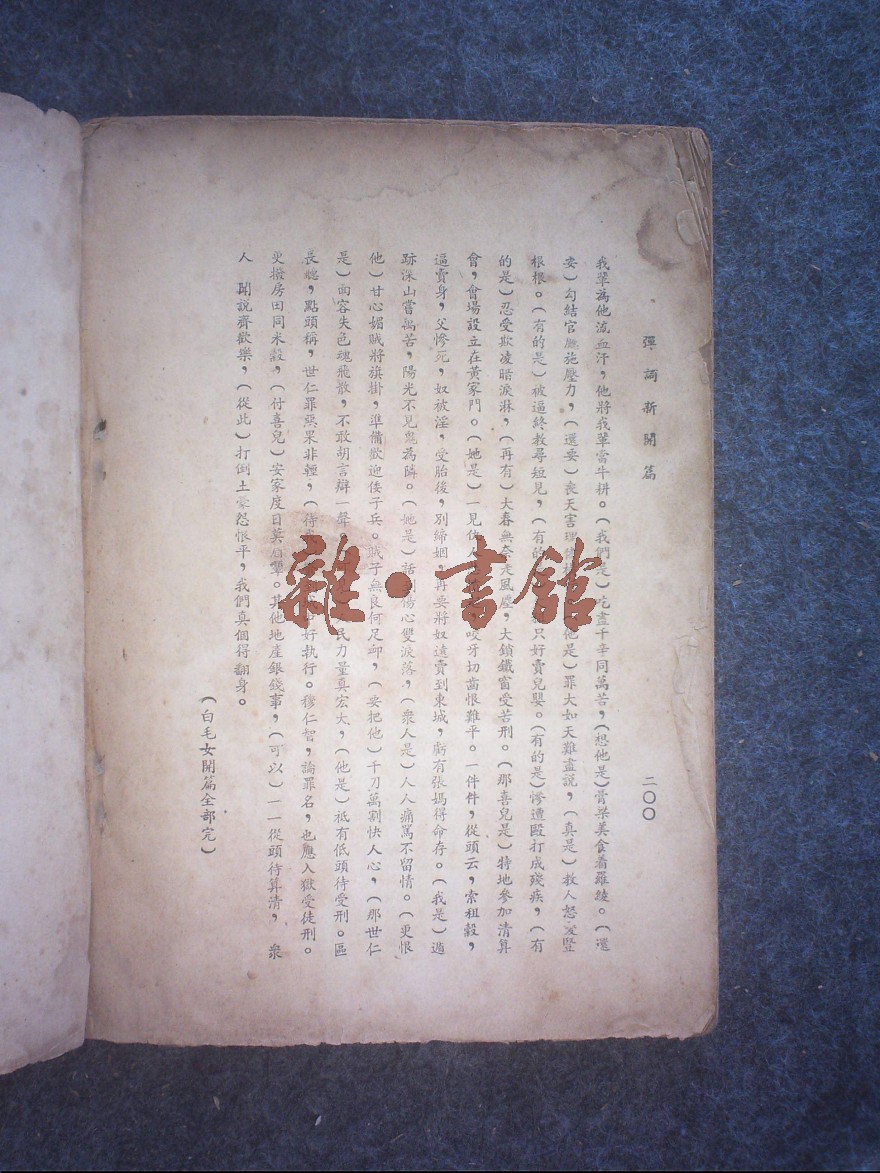 彈詞新開篇
二〇〇
我輩為他流血汗，他將我輩當牛耕。（我們是）吃盡千辛同萬苦，（想他是）膏粱美食着羅綾。（還
要）勾結官廳施壓力，（還要）喪天害理 他是）罪大如天難盡說，（真是）教人怒髮豎
根根。（有的是）被逼終教尋短見，（有的 只好賣兒嬰。（有的是）慘遭毆打成殘疾，（有
的是）忍受欺凌暗淚淋，（再有）大春無奈走風塵，大鎖鐵富受苦刑。（那喜兒是）特地參加清算
會，會場設立在黃家門。（她是）一見仇人 咬牙切齒恨難平。一件件，從頭云，索租穀，
逼賣身，父慘死，奴被淫，受胎後，別締姻，再要將奴遠賣到東城，虧有張媽得命存。（我是）遁
跡深山嘗萬苦，陽光不見鬼為隣。（她是）話到傷心雙淚落，（衆人是）人人痛罵不留情。（更恨
他）甘心媚賊將旗掛，準備歡迎倭子兵。賊子無良何足卹，（要把他）千刀萬割快人心，（那世仁
是）面容失色魂飛散，不敢胡言辯一聲 民力量真宏大，（他是）祗有低頭待受刑。區
長聽，點頭稱，世仁罪惡果非輕，（待 好執行。穆仁智，論罪名，也應入獄受徒刑。
更撥房田同米穀，（付喜兒）安家度日莫 。其他地產銀錢事，（可以）一一從頭待算清，衆
人 聞說齊歡樂，（從此）打倒土豪怨恨平，我們真個得翻身。
（白毛女開篇全部完）
雜·書館